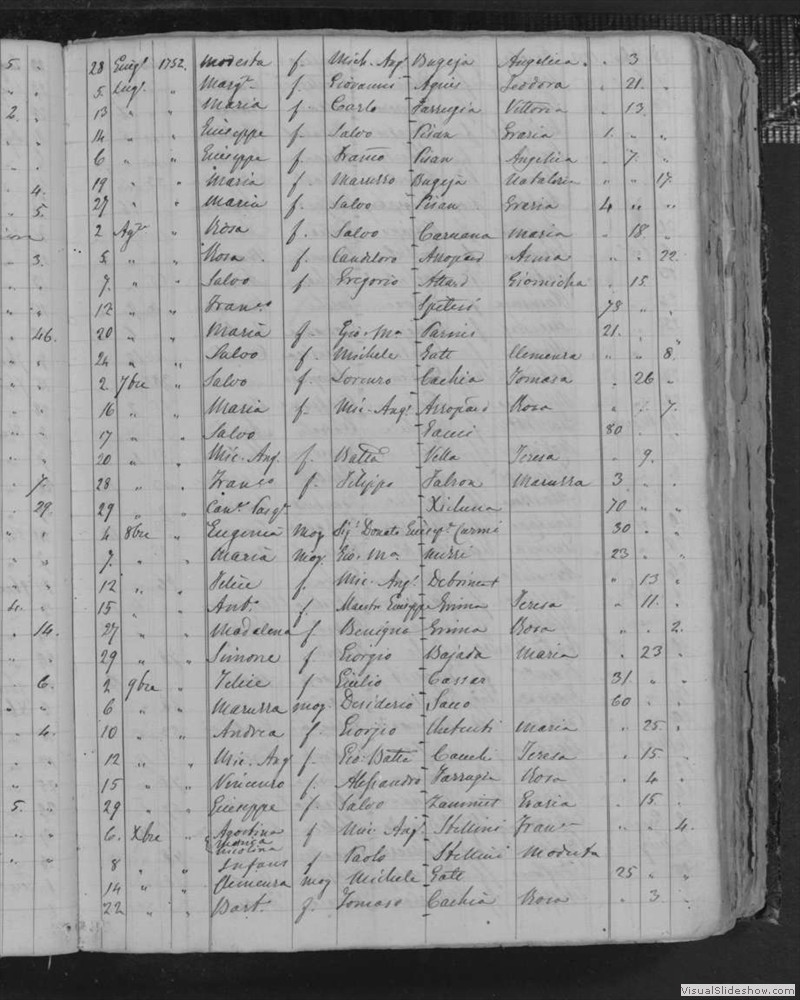 5 " 28 Giug.° 1752 Modesta f. Mich. Ang. Bugeja Angelica . 3
5 Lug.° " Marg.ta f. Giovanni Agius Teodora . 21 .
2. 13 " " Maria f. Carlo Farrugia Vittoria . 13
14 " " Giuseppe f. Salvo Pisan Grazia 1. " "
6 " " Giuseppe f. Pisan Angelica . 7. "
4. 19 " " Maria f. Maruzzo Bugeja Natalizia " " 17.
5. 27 " " Maria f. Salvo Pisan Grazia 4 " "
2 Ag.to " Rosa f. Salvo Caruana Maria . 18.
3. 5 " " Rosa f. Candeloro Azzopard Anna " . 22.
7 " " Salvo f. Gregorio Attard Giomicha . 15
12 " " Fran.co Spiteri 78 " .
46. 20 " " Maria f. Gio. Ma. Parnis 21. .
24 " " Salvo f. Michele Gatt Clemenza " " 8.
2 7bre " Salvo f. Lorenzo Cachia Tomasa . 26 "
16 " " Maria f. Mic. Ang. Azzopard Rosa " . 7.
17 " " Salvo 80 .
20 " " Mic. Ang. f. Batta Vella Teresa . 9.
7. 28 " " Franco f. Filippo Falzon Maruzza 3 .
29. 29 " " Can.co Pasq.e Xicluna 70 " "
4 8bre " Eugenia mog Sig. Donato 30 "
7 " " Maria mog. Gio. Ma. 23 . "
12 " " Felice f. Mic. Ang. Deboinet " 13 "
4. 15 " " Ant. f. Maestro Giuseppe Grima Teresa " 11. "
14. 27 " " Madalena f Benigno Grima Rosa " . 2.
29 " " Simone f Giorgio Bajada Maria . 23 .
6. 2 9bre " Felice f Giulio Cassar 31. " "
6 " " Maruzza mog. Desiderio 60 . "
4. 10 " " Andrea f. Giorgio Chetcuti Maria . 25. .
12 " " Mic. Ang f. Gio. Batta Cauchi Teresa . 15 .
15 " " Vincenzo f. Alessandro Farrugia Rosa . 4 .
5. 29 " " Giuseppe f. Salvo Zammit Grazia . 15 .
6. Xbre " Agostina f Mic. Ang. Stellini Fran.ca " " 4.
Nicolina
8 " " Infans f Paolo Stellini Modesta
14 " " Clemenza mog Michele Gatt 25 " "
22 " " Bart. f. Tomaso Cachia Rosa . 3 .
VisualSlideshow.com